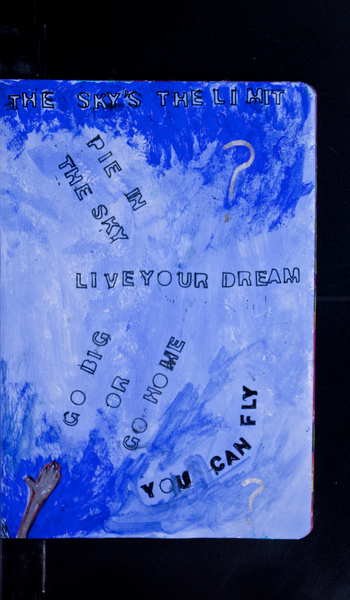 THE SKY'S THE LIMIT
?
PIE IN
THE SKY
LIVE YOUR DREAM
GO BIG
OR
GO HOME
YOU CAN FLY
?